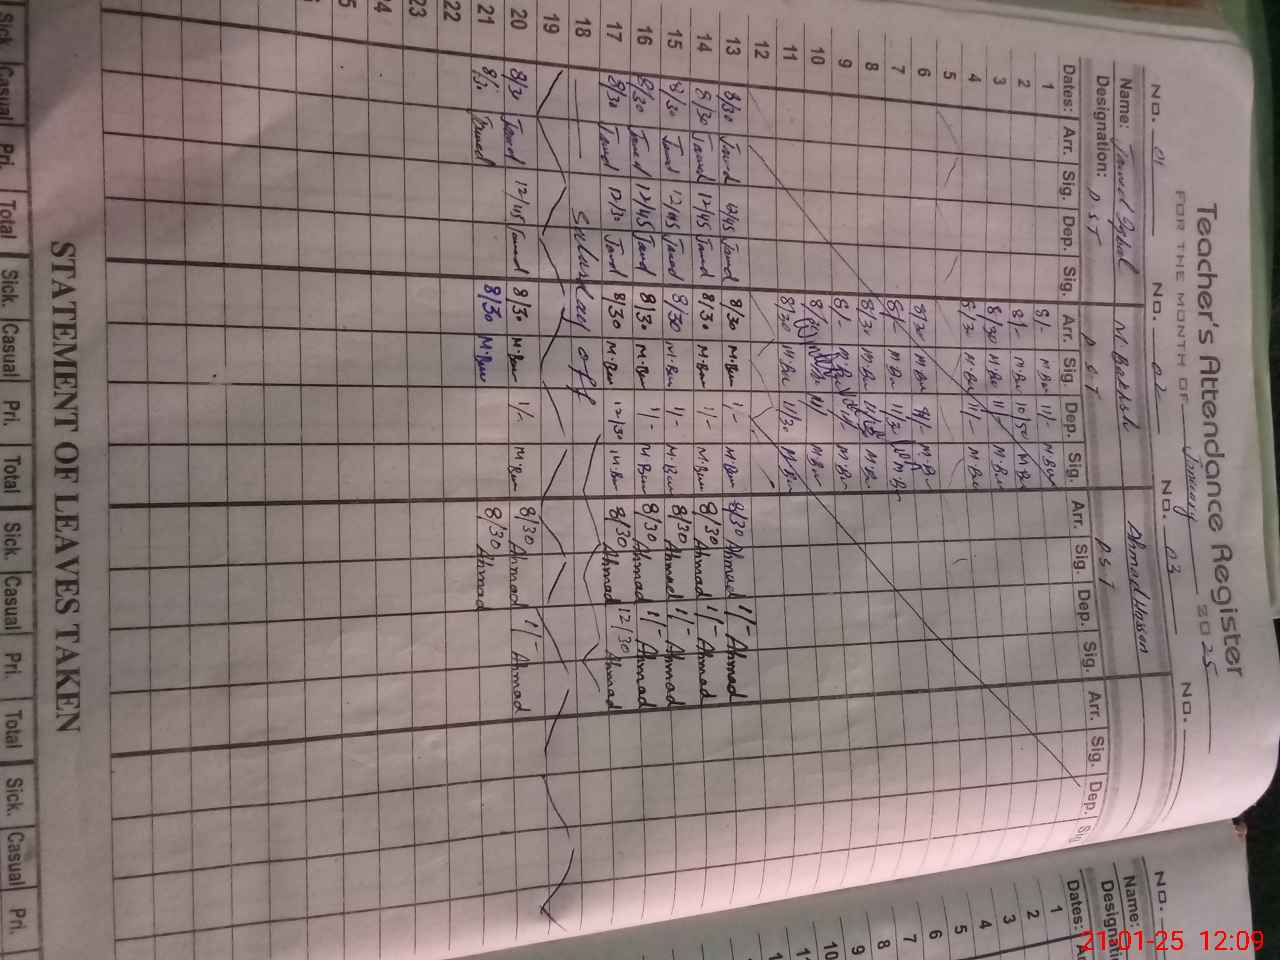 Teacher's Attendance Register
FOR THE MONTH OF January 2025
No. 01 No. 02 No. 03 No.
Name: M. Bakhsh Ahmad Hassan
Designation: P.S.T P.S.T P.S.T
Dates: Arr. Sig. Dep. Sig. Arr. Sig. Dep. Sig. Arr. Sig. Dep. Sig. Arr. Sig. Dep. Sig
1 8/- M.Bux 11/- M.Bux
2 8/- M.Bux 10/50 M.Bux
3 8/30 M.Bux 11/- M.Bux
4 8/30 M.Bux 11/- M.Bux
5
6 8/30 M.Bux 11/- M.Bux
7 8/- M.Bux 11/30 M.Bux
8 8/30 M.Bux M.Bux
9 8/- M.Bux M.Bux
10 M.Bux
11 8/30 M.Bux 11/30 M.Bux
12
13 8/30 Javed 12/45 Javed 8/30 M.Bux 1/- M.Bux 8/30 Ahmad 1/- Ahmad
14 8/30 Javed 12/45 Javed 8/30 M.Bux 1/- M.Bux 8/30 Ahmad 1/- Ahmad
15 8/30 Javed 12/45 Javed 8/30 M.Bux 1/- M.Bux 8/30 Ahmad 1/- Ahmad
16 8/30 Javed 12/45 Javed 8/30 M.Bux 1/- M.Bux 8/30 Ahmad 1/- Ahmad
17 8/30 Javed 12/30 Javed 8/30 M.Bux 12/30 M.Bux 8/30 Ahmad 12/30 Ahmad
18 off
19
20 8/30 Javed 12/45 Javed 8/30 M.Bux 1/- M.Bux 8/30 Ahmad 1/- Ahmad
21 8/30 Javed 8/30 M.Bux 8/30 Ahmad
22
23
24
5
STATEMENT OF LEAVES TAKEN
Sick Casual Pri. Total Sick. Casual Pri. Total Sick. Casual Pri. Total Sick. Casual Pri.
No.
Name:
Designati
Dates: A
1
2
3
4
5
6
7
8
9
10
11
1
21-01-25 12:09